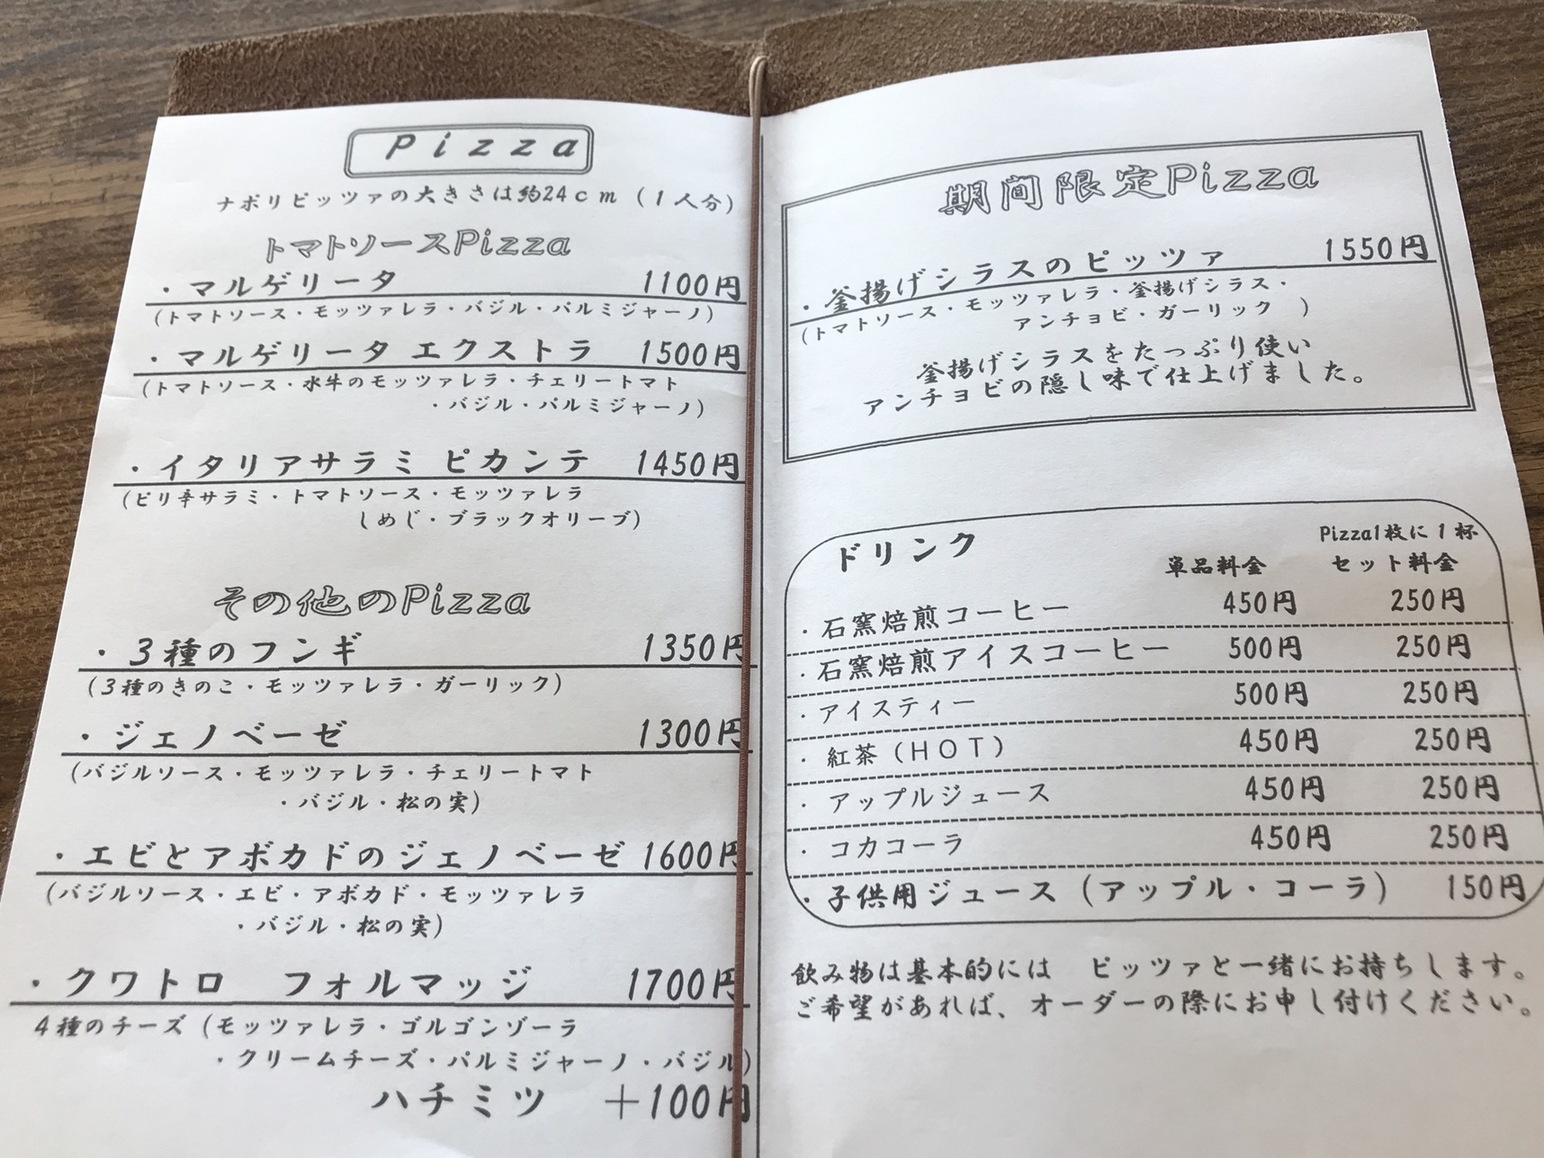 Pizza
ナポリピッツァの大きさは約24cm（1人分）
トマトソースPizza
・マルゲリータ 1100円
（トマトソース・モッツァレラ・バジル・パルミジャーノ）
・マルゲリータ エクストラ 1500円
（トマトソース・水牛のモッツァレラ・チェリートマト
・バジル・パルミジャーノ）
・イタリアサラミ ピカンテ 1450円
（ピリ辛サラミ・トマトソース・モッツァレラ
しめじ・ブラックオリーブ）
その他のPizza
・3種のフンギ 1350円
（3種のきのこ・モッツァレラ・ガーリック）
・ジェノベーゼ 1300円
（バジルソース・モッツァレラ・チェリートマト
・バジル・松の実）
・エビとアボカドのジェノベーゼ 1600円
（バジルソース・エビ・アボカド・モッツァレラ
・バジル・松の実）
・クワトロ フォルマッジ 1700円
4種のチーズ（モッツァレラ・ゴルゴンゾーラ
・クリームチーズ・パルミジャーノ・バジル）
ハチミツ ＋100円
期間限定Pizza
・釜揚げシラスのピッツァ 1550円
（トマトソース・モッツァレラ・釜揚げシラス・
アンチョビ・ガーリック ）
釜揚げシラスをたっぷり使い
アンチョビの隠し味で仕上げました。
Pizza1枚に1杯
ドリンク 単品料金 セット料金
・石窯焙煎コーヒー 450円 250円
・石窯焙煎アイスコーヒー 500円 250円
・アイスティー 500円 250円
・紅茶（HOT） 450円 250円
・アップルジュース 450円 250円
・コカコーラ 450円 250円
・子供用ジュース（アップル・コーラ） 150円
飲み物は基本的には ピッツァと一緒にお持ちします。
ご希望があれば、オーダーの際にお申し付けください。